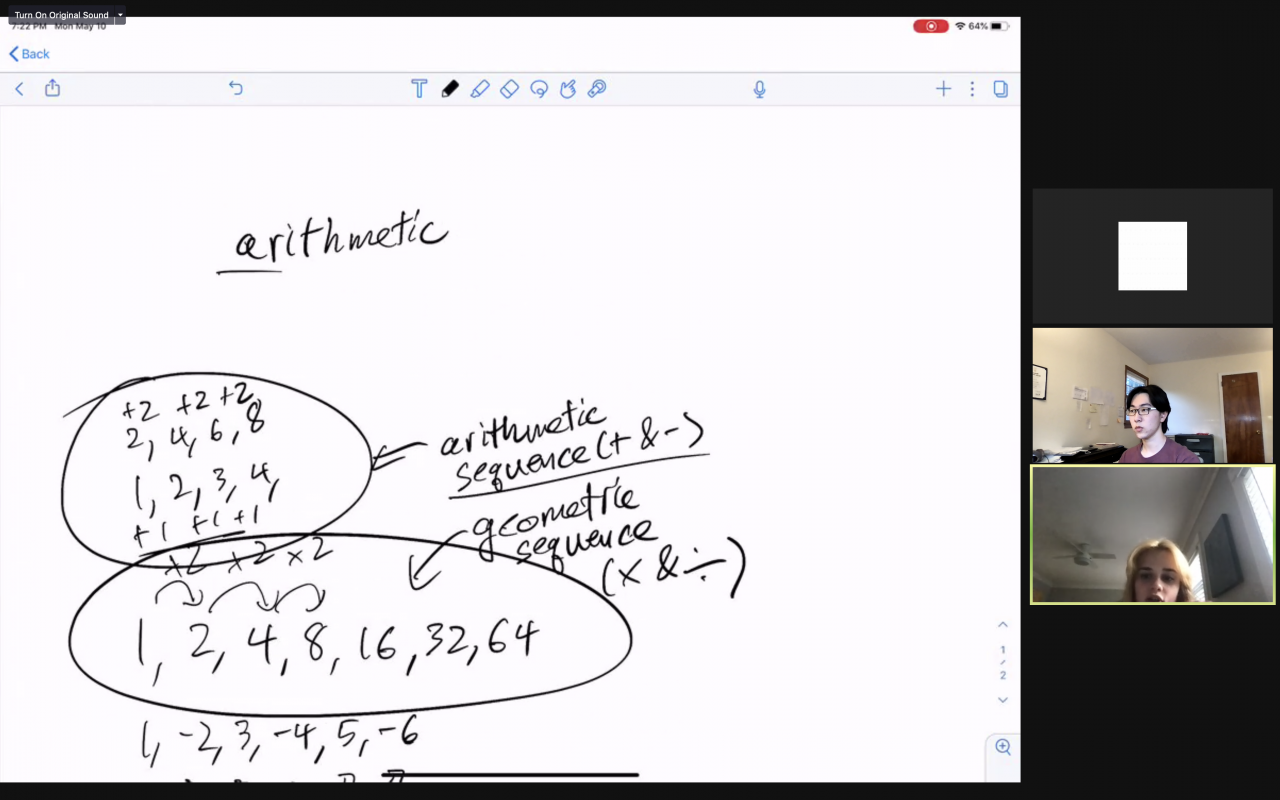 Turn On Original Sound
7:22 PM Mon May 10
64%
Back
T
arithmetic
+2 +2 +2
2, 4, 6, 8
1, 2, 3, 4,
+1 +1 +1
arithmetic
sequence (+ & -)
geometric
sequence
(x & ÷)
x2 x2 x2
1, 2, 4, 8, 16, 32, 64
1, -2, 3, -4, 5, -6
1
/
2